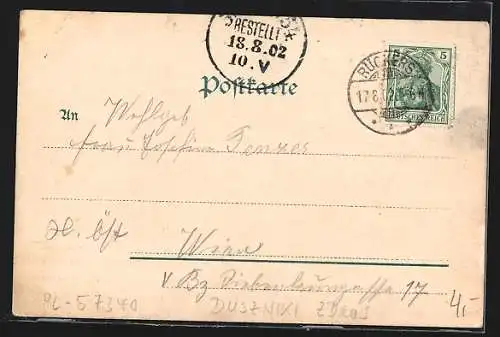 BESTELLT
18.8.02
10.V
RÜCKERS
17.8.02
5
DEUTSCHES REICH
Postkarte
An Wohlgeb
Frau Josefine
N. Öst
Wien
V Bz 17
PL-57340 DUSZNIKI ZDROJ 4,-